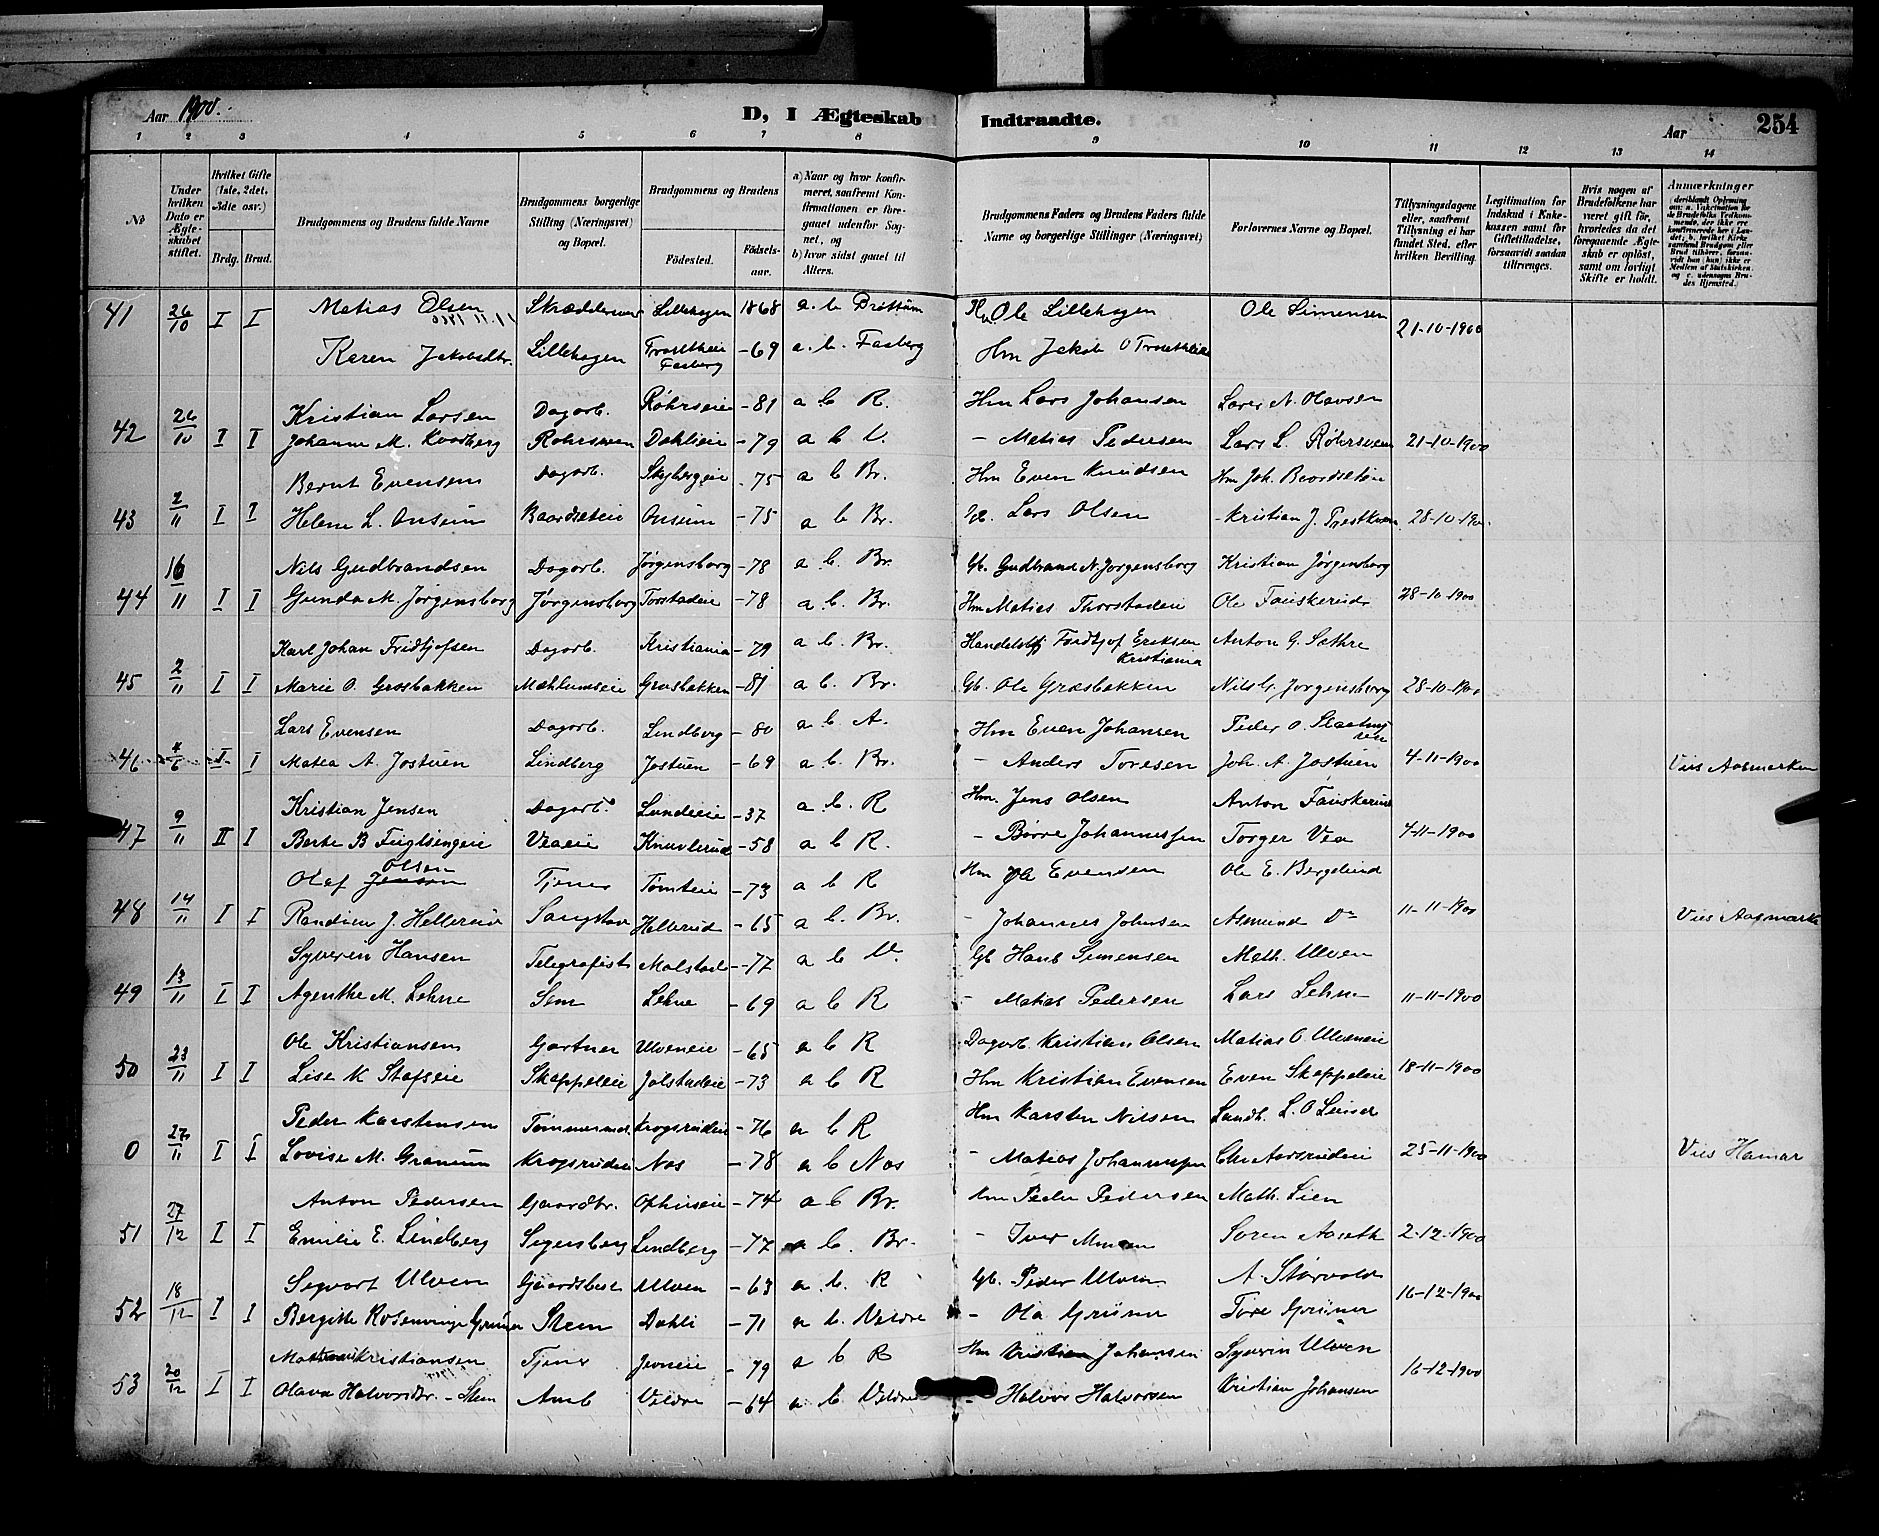 Aar 1900. D, I Ægteskab Indtraadte. Aar 254
1 2 3 4 5 6 7 8 9 10 11 12 13 14
No
Under hvilken Dato er Ægteskabet stiftet.
Hvilket Gifte (1ste, 2det, 3die osv.)
Brdg. Brud.
Brudgommens og Brudens fulde Navne
Brudgommens borgerlige Stilling (Næringsvei) og Bopæl.
Brudgommens og Brudens
Fødested.
Fødselsaar.
a) Naar og hvor konfirmeret, saafremt Konfirmationen er foregaaet udenfor Sognet, og
b) hvor sidst gaaet til Alters.
Brudgommens Faders og Brudens Faders fulde Navne og borgerlige Stillinger (Næringsvei)
Forlovernes Navne og Bopæl.
Tillysningsdagene eller, saafremt Tillysning ei har fundet Sted, efter hvilken Bevilling.
Legitimation for Indskud i Enkekassen samt for Giftetilladelse, forsaavidt saadan tiltrænges.
Hvis nogen af Brudefolkene har været gift før, hvorledes da det foregaaende Ægteskab er opløst, samt om lovligt Skifte er holdt.
Anmærkninger
Matias Olsen Lillehagen 1868 a. b. Ole Lillehagen Ole Simensen
41 26/10 I I Karen Jakobsdtr. Lillehagen Faaberg -69 a. b. Faaberg Hm Jakob O 21-10-1900
Kristian Larsen Dagarb. Røhrseie -81 a b R. Hm Lars Johansen Lars N. Olavsen
42 26/10 I I Johanne M. Kvarberg Røhrsveen Dahlieie -79 a b V. - Matias Pedersen Lars L. Røhrsveen 21-10-1900
Bernt Evensen Dagarb. Skybergeie -75 a b Br. Hm Even Knudsen Hm Joh. Baardseteie
43 2/11 I I Helene L. Onsum Baardseteie Onsum -75 a b Br. Lars Olsen - Kristian J. 28-10-1900
Nils Gudbrandsen Dagarb. Jørgensborg -78 a. b. Br. Gb. Gudbrand N. Jørgensborg Kristian Jørgensborg
44 16/11 I I Gunda M. Jørgensborg Jørgensborg Torstadeie -78 a. b. Br. Hm Matias Thorstadeie Ole Fauskerud 28-10-1900
Karl Johan Fridtjofsen Dagarb. Kristiania -79 a b. Br. Fridtjof Eriksen Kristiania Anton G. Sethre
45 2/11 I I Marie O. Græsbakken Mæhlumseie Græsbakken -81 a b. Br. Gb. Ole Græsbakken Nils G. Jørgensborg 28-10-1900
Lars Evensen Dagarb. Lindberg -80 a b. A. Hm Even Johansen Peder O.
46 I I Matea A. Jostuen Lindberg Jostuen -69 a b. Br. - Anders Toresen Joh. A. Jostuen 4-11-1900 Vies Aasmarken
Kristian Jensen Dagarb. Lundeie -37 a. b. R Hm. Jens Olsen Anton Fauskerud
47 9/11 II I Berte B Fuglsingeie Veaeie Knuvlerud -58 a b R. - Børre Johannessen Torger Vea 4-11-1900
Olaf Olsen Tjener Tømteie -73 a b R Hm Evensen Ole E. Berglund
48 14/11 I I Randine J. Hellerud Hellerud -65 a b. Br. - Johannes Johnsen Asmund Do 11-11-1900 Vies Aasmark
Syverin Hansen Telegrafist Molstad -77 a b V. Gb Hans Simensen Math. Ulven
49 13/11 I I Agenthe M. Lehne Sem Lehne -69 a b R - Matias Pedersen Lars Lehne 11-11-1900
Ole Kristiansen Gartner Ulveneie -65 a b R Dagarb. Kristian Olsen Matias O. Ulveneie
50 23/11 I I Lise K Stafseie Skappeleie Jølstadeie -73 a b R Hm Kristian Evensen Even Skappeleie 18-11-1900
Peder Karstensen Tømmermd. Krogsrudeie -76 a b R Hm Karsten Nilsen Landh. L. O
0 27/11 I I Lovise M. Granum Krogsrudeie Nes -78 a b Nes - Matias Johannessen 25-11-1900 Vies Hamar
Anton Pedersen Gaardbr. Ophuseie -74 a b Br. Hm Peder Pedersen Math. Lien
51 27/12 I I Emilie E. Lindberg Segersberg Lindberg -77 a b. Br. - Iver Søren Aaseth 2-12-1900
Segvart Ulven Ulven -63 a. b. R Gb. Peder Ulven A. Størvold
52 18/12 I I Bergitte Rosenvinge Grüner Stein Dahli -71 a b. Veldre - Ole Grüner Tore Grüner 16-12-1900
Kristiansen Tjener Jevneie -79 a b R Hm Kristian Johansen Syverin Ulven
53 20/12 I I Olava Halvorsdtr. - Stein Amb Veldre -64 a. b. Veldre - Halvor Halvorsen Kristian Johansen 16-12-1900